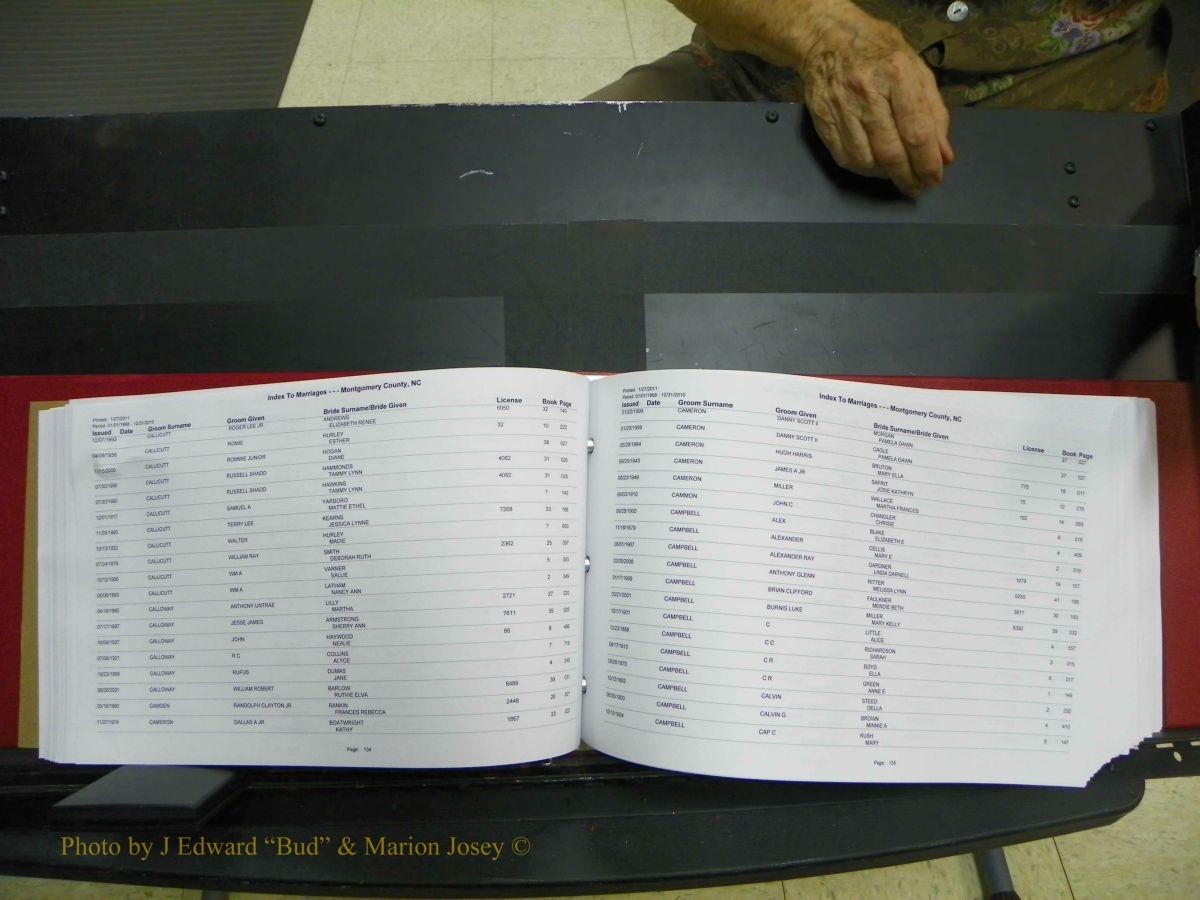 Index To Marriages - - - Montgomery County, NC
Printed: 1/27/2011
Period: 01/01/1868 - 12/31/2010
Issued Date Groom Surname Groom Given Bride Surname/Bride Given License Book Page
12/07/1993 CALLICUTT ROGER LEE JR ANDREWS 6950 32 140
ELIZABETH RENEE
CALLICUTT ROMIE HURLEY 32 10 222
ESTHER
CALLICUTT ROMMIE JUNIOR HOGAN 38 027
DIANE
07/30/1990 CALLICUTT RUSSELL SHADD HAMMONDS 4082 31 026
TAMMY LYNN
07/30/1990 CALLICUTT RUSSELL SHADD HAWKINS 4082 31 026
TAMMY LYNN
12/01/1917 CALLICUTT SAMUEL A YARBORO 7 140
MATTIE ETHEL
11/25/1995 CALLICUTT TERRY LEE KEARNS 7268 33 166
JESSICA LYNNE
10/13/1922 CALLICUTT WALTER HURLEY 7
MADIE
07/24/1979 CALLICUTT WILLIAM RAY SMITH 2362 25 097
DEBORAH RUTH
10/12/1906 CALLICUTT WM A VARNER 5 393
SALLIE
CALLICUTT WM A LATHAM 2 349
NANCY ANN
04/16/1982 CALLOWAY ANTHONY UNTRAE LILLY 2721 27 020
MARTHA
07/17/1997 CALLOWAY JESSE JAMES ARMSTRONG 7611 35 028
SHERRY ANN
CALLOWAY JOHN HAYWOOD 66 8
NEALIE
07/06/1921 CALLOWAY R.C COLLINS 7 719
ALYCE
CALLOWAY RUFUS DUMAS 4
JANE
08/28/2001 CALLOWAY WILLIAM ROBERT BARLOW 8489 39 031
RUTHIE ELVA
05/16/1980 CAMDEN RANDOLPH CLAYTON JR RANKIN 2448 26 021
FRANCES REBECCA
11/27/1974 CAMERON DALLAS A JR BOATWRIGHT 1867 23 022
KATHY
Page: 134
Index To Marriages - - - Montgomery County, NC
Printed: 1/27/2011
Period: 01/01/1868 - 12/31/2010
Issued Date Groom Surname Groom Given Bride Surname/Bride Given License Book Page
01/20/1999 CAMERON DANNY SCOTT II MORGAN 37 027
PAMELA DAWN
01/20/1999 CAMERON DANNY SCOTT II CAGLE 37 027
PAMELA DAWN
05/29/1964 CAMERON HUGH HARRIS BRUTON 775 18 017
MARY ELLA
09/25/1943 CAMERON JAMES A JR SAFRIT 75 12 216
JOSIE KATHRYN
08/23/1949 CAMERON MILLER WALLACE 192 14
MARTHA FRANCES
CAMMON JOHN C CHANDLER 6
CHRISIE
09/28/1900 CAMPBELL ALEX BLAKE 4 409
ELIZABETH E
11/18/1879 CAMPBELL ALEXANDER CELLIS 2 019
MARY E
CAMPBELL ALEXANDER RAY GARDNER 1079 19 137
LINDA DARNELL
CAMPBELL ANTHONY GLENN RITTER 9283 41
MELISSA LYNN
01/17/1989 CAMPBELL BRIAN CLIFFORD FAULKNER 3811 30 183
MENDIE BETH
03/21/2001 CAMPBELL BURNIS LUKE MILLER 8392 39 032
MARY KELLY
12/17/1901 CAMPBELL C LITTLE 4 557
ALICE
12/22/1888 CAMPBELL C C RICHARDSON 3 015
SARAH
CAMPBELL C R BOYD 6 017
ELLA
CAMPBELL C R GREEN 1 149
ANNE E
10/12/1882 CAMPBELL CALVIN STEED 2 252
DELLA
CAMPBELL CALVIN G BROWN 4 410
MINNIE A
10/13/1904 CAMPBELL CAP C RUSH 5 147
MARY
Page: 135
Photo by J Edward “Bud” & Marion Josey ©